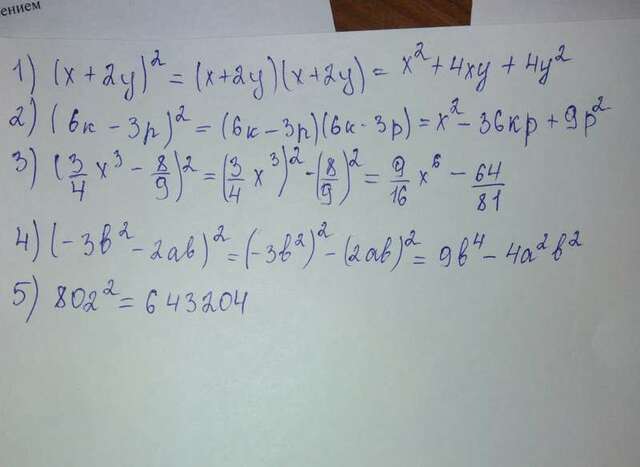 ением
1) (x + 2y)² = (x+2y)(x+2y) = x² + 4xy + 4y²
2) (6к - 3р)² = (6к - 3р)(6к - 3р) = x² - 36кр + 9р²
3) (3/4 x³ - 8/9)² = (3/4 x³)² - (8/9)² = 9/16 x⁶ - 64/81
4) (-3в² - 2ав)² = (-3в²)² - (2ав)² = 9в⁴ - 4а²в²
5) 802² = 643204